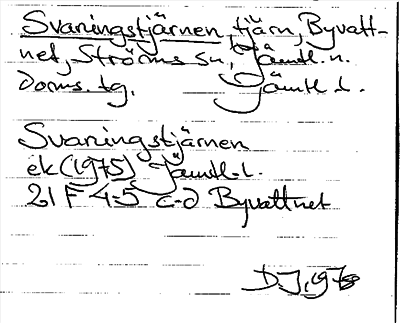 Svaningstjärnen, tjärn, Byvatt-
net, Ströms sn, Jämtl. n.
doms. tg. Jämtl. l.
Svaningstjärnen
ek (1975) Jämtl. l.
21 F 4-5 c-d Byvattnet
D.J. 1975